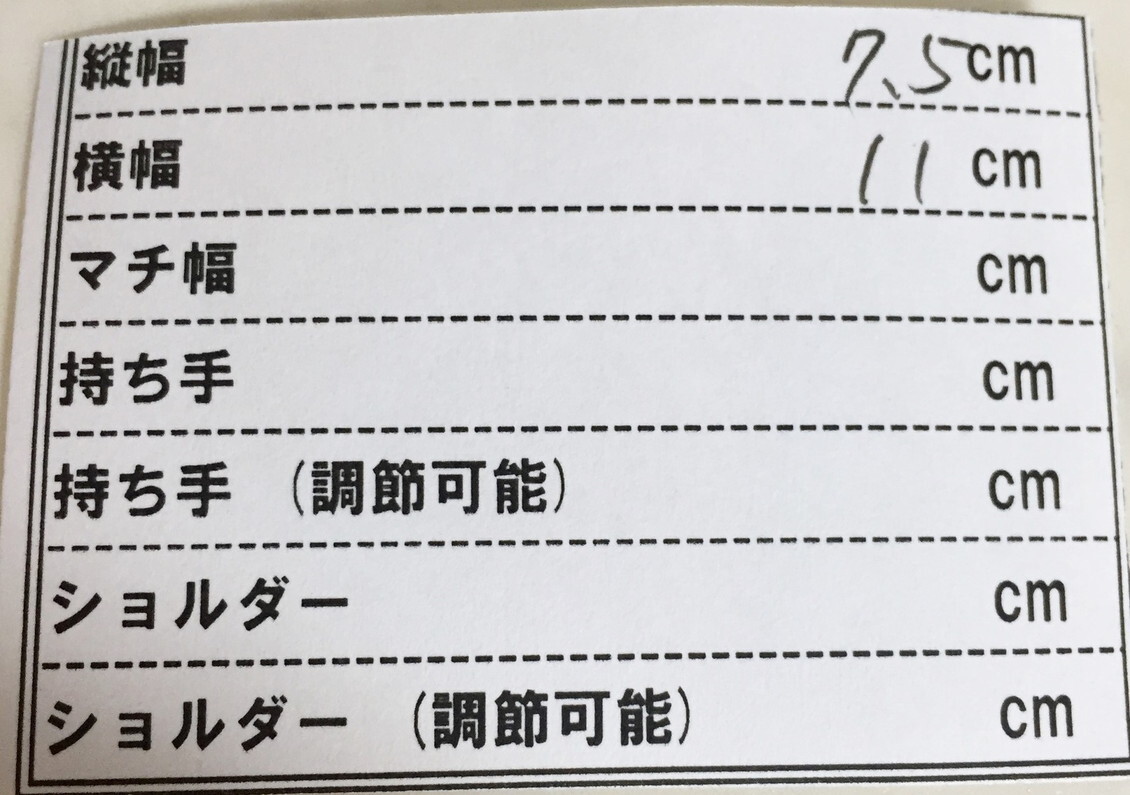 縦幅 7.5cm
横幅 11 cm
マチ幅 cm
持ち手 cm
持ち手 (調節可能) cm
ショルダー cm
ショルダー (調節可能) cm